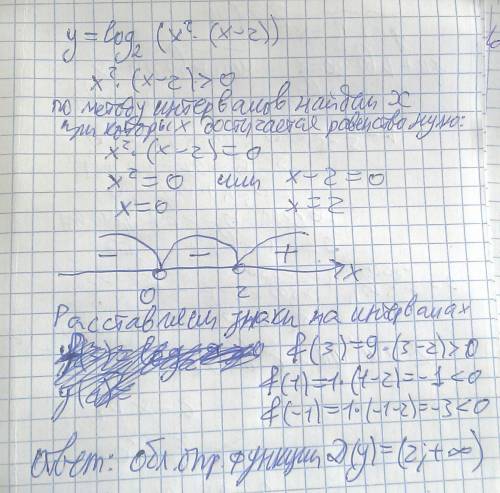 y = log₂ (x² · (x-2))
x² · (x-2) > 0
по методу интервалов найдем x
при которых достигается равенство нулю:
x² · (x-2) = 0
x² = 0 или x-2 = 0
x = 0 x = 2
− − + x
0 2
Расставляем знаки на интервалах
f(3) = 9 · (3-2) > 0
f(1) = 1 · (1-2) = -1 < 0
f(-1) = 1 · (-1-2) = -3 < 0
Ответ: обл. опр. функции D(y) = (2; +∞)